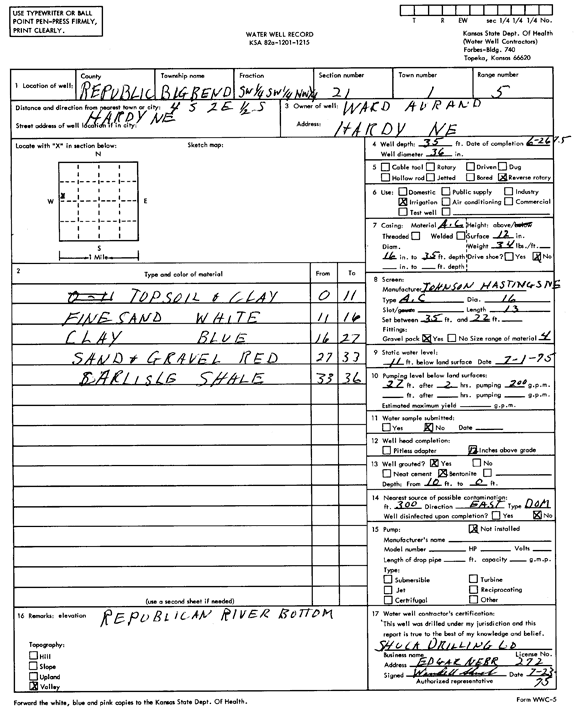 USE TYPEWRITER OR BALL
POINT PEN-PRESS FIRMLY,
PRINT CLEARLY.
WATER WELL RECORD
KSA 82a-1201-1215
T R EW sec 1/4 1/4 1/4 No.
Kansas State Dept. Of Health
(Water Well Contractors)
Forbes-Bldg. 740
Topeka, Kansas 66620
1 Location of well: County REPUBLIC Township name BIGBEND Fraction SW¼ SW¼ NW¼ Section number 21 Town number 1 Range number 5
Distance and direction from nearest town or city: 4 S 2E ½ S
HARDY NE
Street address of well location if in city:
3 Owner of well: WARD AURAND
Address: HARDY NE
Locate with "X" in section below:
Sketch map:
N
W X E
S
1 Mile
4 Well depth: 35 ft. Date of completion 6-26-75
Well diameter 36 in.
5 Cable tool Rotary Driven Dug
Hollow rod Jetted Bored X Reverse rotary
6 Use: Domestic Public supply Industry
X Irrigation Air conditioning Commercial
Test well
7 Casing: Material A.C Height: above/below
Threaded Welded Surface 12 in.
Diam. Weight 34 lbs./ft.
16 in. to 35 ft. depth Drive shoe? Yes X No
in. to ft. depth
2 Type and color of material From To
TOPSOIL & CLAY 0 11
FINE SAND WHITE 11 16
CLAY BLUE 16 27
SAND & GRAVEL RED 27 33
CARLISLE SHALE 33 36
(use a second sheet if needed)
8 Screen:
Manufacturer JOHNSON HASTINGS NE
Type A.C Dia. 16
Slot/gauze Length 13
Set between 35 ft. and 22 ft.
Fittings:
Gravel pack X Yes No Size range of material 4
9 Static water level:
11 ft. below land surface Date 7-1-75
10 Pumping level below land surfaces:
27 ft. after 2 hrs. pumping 200 g.p.m.
ft. after hrs. pumping g.p.m.
Estimated maximum yield g.p.m.
11 Water sample submitted:
Yes X No Date
12 Well head completion:
Pitless adapter Inches above grade
13 Well grouted? X Yes No
Neat cement X Bentonite
Depth: From 10 ft. to 0 ft.
14 Nearest source of possible contamination:
ft. 300 Direction EAST Type DOM
Well disinfected upon completion? Yes X No
15 Pump: X Not installed
Manufacturer's name
Model number HP Volts
Length of drop pipe ft. capacity g.m.p.
Type:
Submersible Turbine
Jet Reciprocating
Centrifugal Other
16 Remarks: elevation REPUBLICAN RIVER BOTTOM
Topography:
Hill
Slope
Upland
X Valley
17 Water well contractor's certification:
This well was drilled under my jurisdiction and this
report is true to the best of my knowledge and belief.
DRILLING
Business name License No.
Address EDGAR NEBR 272
Signed Date 7-23-75
Authorized representative
Forward the white, blue and pink copies to the Kansas State Dept. Of Health.
Form WWC-5